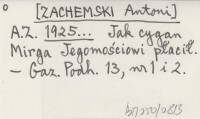 [ZACHEMSKI Antoni]
A.Z. 1925... Jak cygan
Mirga Jegomościowi płacił.
– Gaz. Podh. 13, nr 1 i 2.